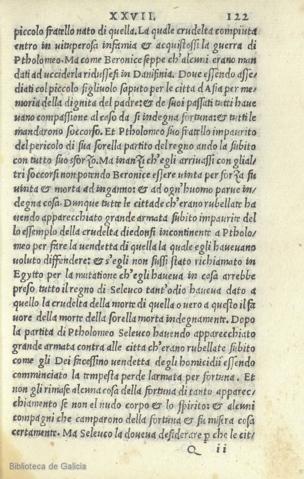 XXVII. 122
piccolo fratello nato di quella. La quale crudelta compiuta
entro in uituperosa infamia & acquistossi la guerra di
Ptholomeo. Ma come Beronice seppe ch'alcuni erano man
dati ad ucciderla ridussesi in Danfinia. Doue essendo asse
diati col piccolo figliuolo saputo per le citta d'Asia per me=
moria della dignita del padre & de suoi passati tutti haue
uano compassione al caso da si indegna fortuna: & tutti le
mandarono soccorso. Et Ptholomeo suo fratello impaurito
del pericolo di sua sorella partito del regno ando la subito
con tutto suo sforzo. Ma inanzi ch'egli arriuassi con gli al
tri soccorsi non potendo Beronice essere uinta per forza fu
uinta & morta ad inganno: & ad ogn'huomo parue in=
degna cosa. Dunque tutte le cittade ch'erano rubellate ha
uendo apparecchiato grande armata subito impaurite del
lo essemplo della crudelta diedonsi incontinente a Ptholo=
meo per fare la uendetta di quella la quale egli haueuano
uoluto diffendere: & s'egli non fussi stato richiamato in
Egytto per la mutatione ch'egli haueua in cosa arrebbe
preso tutto il regno di Seleuco tant'odio haueua dato a
quello la crudelta della morte di quella o uero a questo il fa
uore della morte della sorella morta indegnamente. Dopo
la partita di Ptholomeo Seleuco hauendo apparecchiato
grande armata contra alle citta ch'erano rubellate subito
come gli Dei facessino uendetta de gli homicidii essendo
comminciato la tempesta perde l'armata per fortuna. Et
non gli rimase alcuna cosa della fortuna di tanto apparec=
chiamento se non el nudo corpo & lo spirito: & alcuni
compagni che camparono della fortuna & fu misera cosa
certamente. Ma Seleuco la doueua desiderare p che le cit=
Q ii
Biblioteca de Galicia